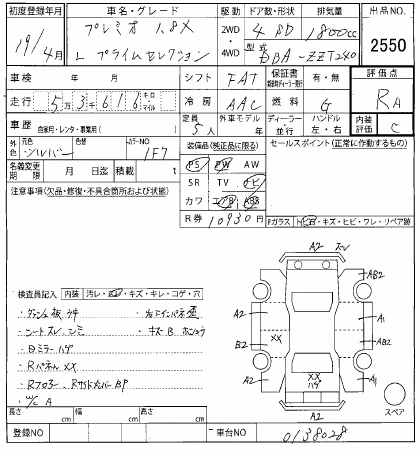 初度登録年月 車名・グレード 2WD・4WD ドア数・形状 排気量 出品NO.
19/4月 プレミオ 1.8X 4 SD 1800cc 2550
L プライムセレクション 型式 DBA-ZZT240
車検 年 月 シフト FAT 保証書 有・無 評価点
走行 5万3千616 キロ・マイル 冷房 AAC 燃料 G RA
車歴 自家用・レンタ・事業用( ) 定員 5人 外車モデル 年 ディーラー・並行 ハンドル 左・右 内装評価 C
外色 元色 シルバー 色替 カラーNO 1F7 装備品(純正品に限る) セールスポイント(正常に作動するもの)
名義変更期限 月 日迄 積載 t PS PW AW
注意事項(欠品・修復・不具合箇所および状態) SR TV ナビ
カワ エアB ABS
R券 10930円 Fガラス
A2
検査員記入 内装 汚レ・キズ・キレ・コゲ・穴
・ダッシュ板ウキ
・シートスレ シミ
・Bミラーハゲ
・Rパネル XX
・Rフロアー、Rサイドメンバー BP
・W/C A
AB2
A2
A1
B2
XX
AB2
XX
ハゲ
A2
A1
A2
スペア
長さ cm 幅 cm 高さ cm
登録NO 車台NO 0138028